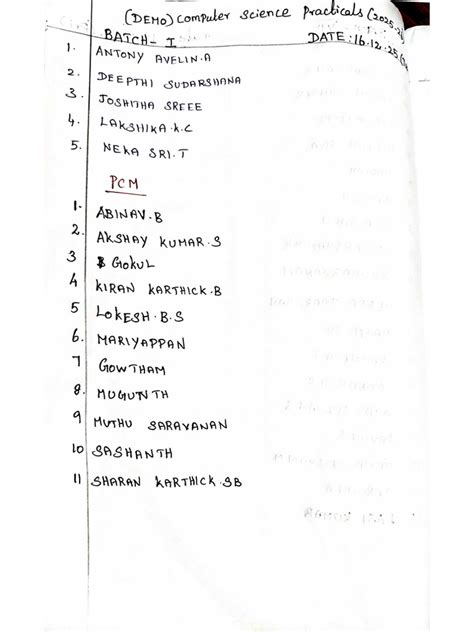 (DEMO) Computer Science Practicals (2025-26)
BATCH - I DATE: 16.12.25
1. ANTONY AVELIN.A
2. DEEPTHI SUDARSHANA
3. JOSHITHA SREEE
4. LAKSHIKA.K.C
5. NEKA SRI.T
PCM
1. ABINAV.B
2. AKSHAY KUMAR.S
3 GOKUL
4 KIRAN KARTHICK.B
5 LOKESH.B.S
6. MARIYAPPAN
7 GOWTHAM
8. MUGUNTH
9 MUTHU SARAVANAN
10 SASHANTH
11 SHARAN KARTHICK.SB